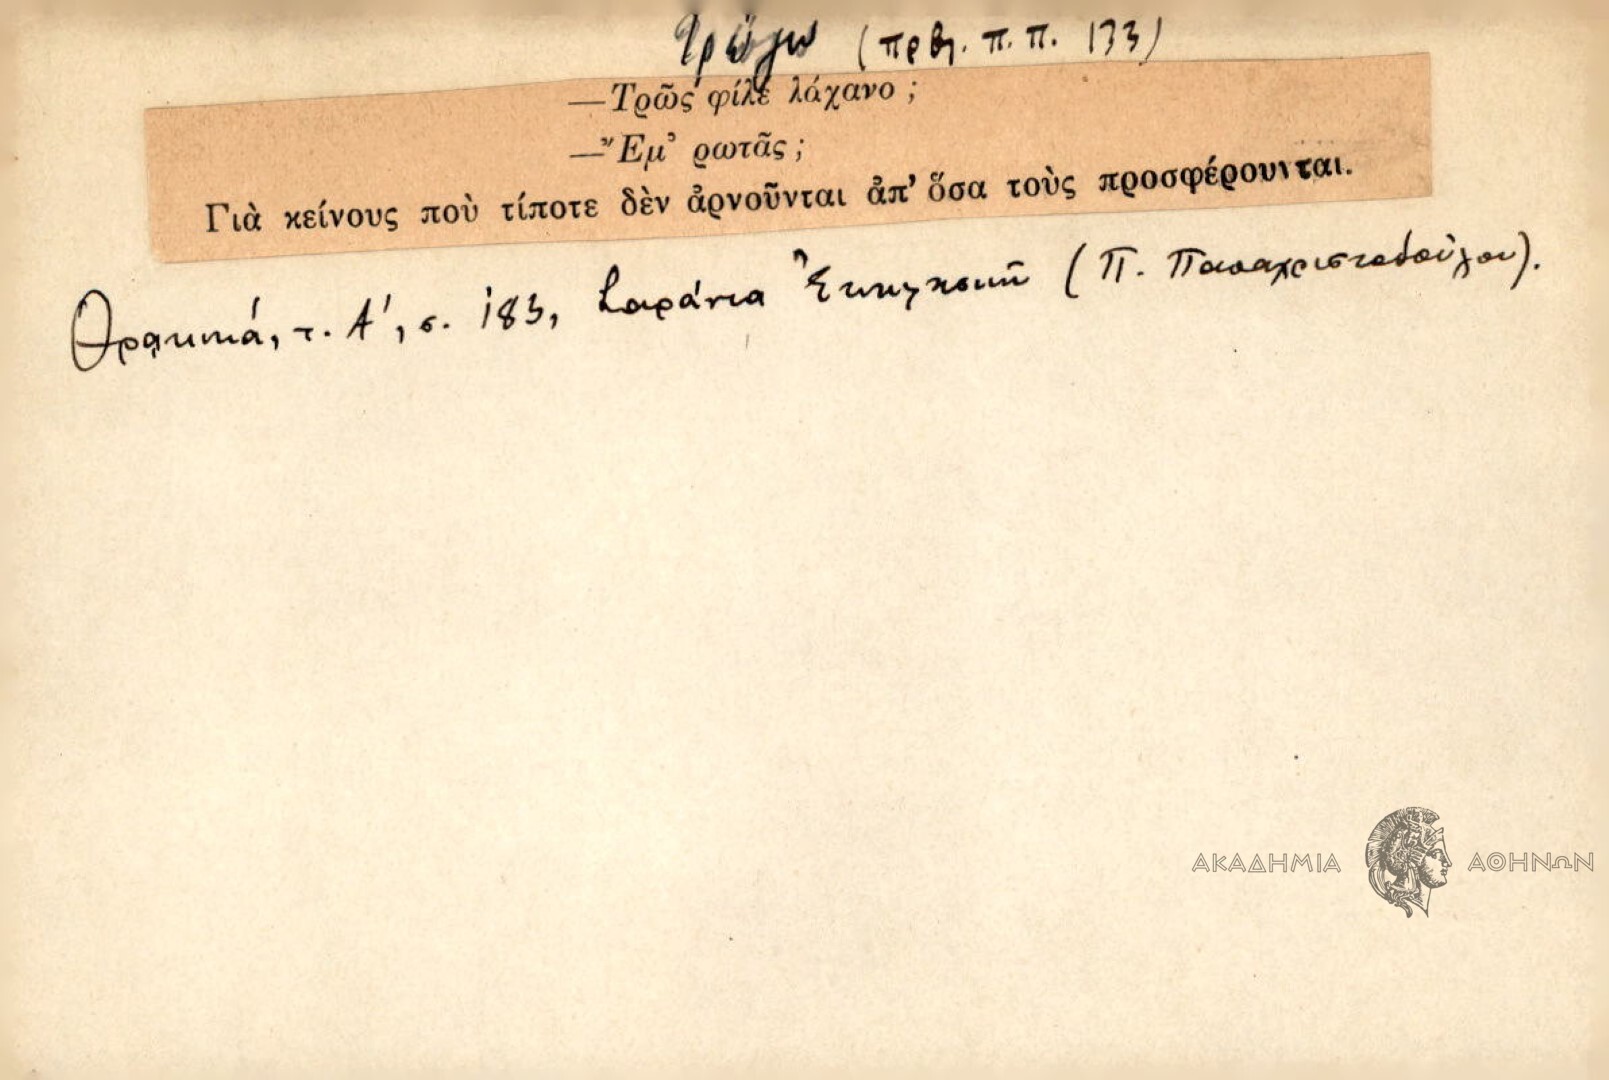 Τρώγω (πρβλ. π.π. 133)
—Τρῶς φίλε λάχανο ;
—Ἔμ' ρωτᾶς ;
Γιὰ κείνους ποὺ τίποτε δὲν ἀρνοῦνται ἀπ' ὅσα τοὺς προσφέρουνται.
Θρακικά, τ. Α', σ. 183, Σαράντα Ἐκκλησιῶν (Π. Παπαχριστοδούλου).
ΑΚΑΔΗΜΙΑ ΑΘΗΝΩΝ